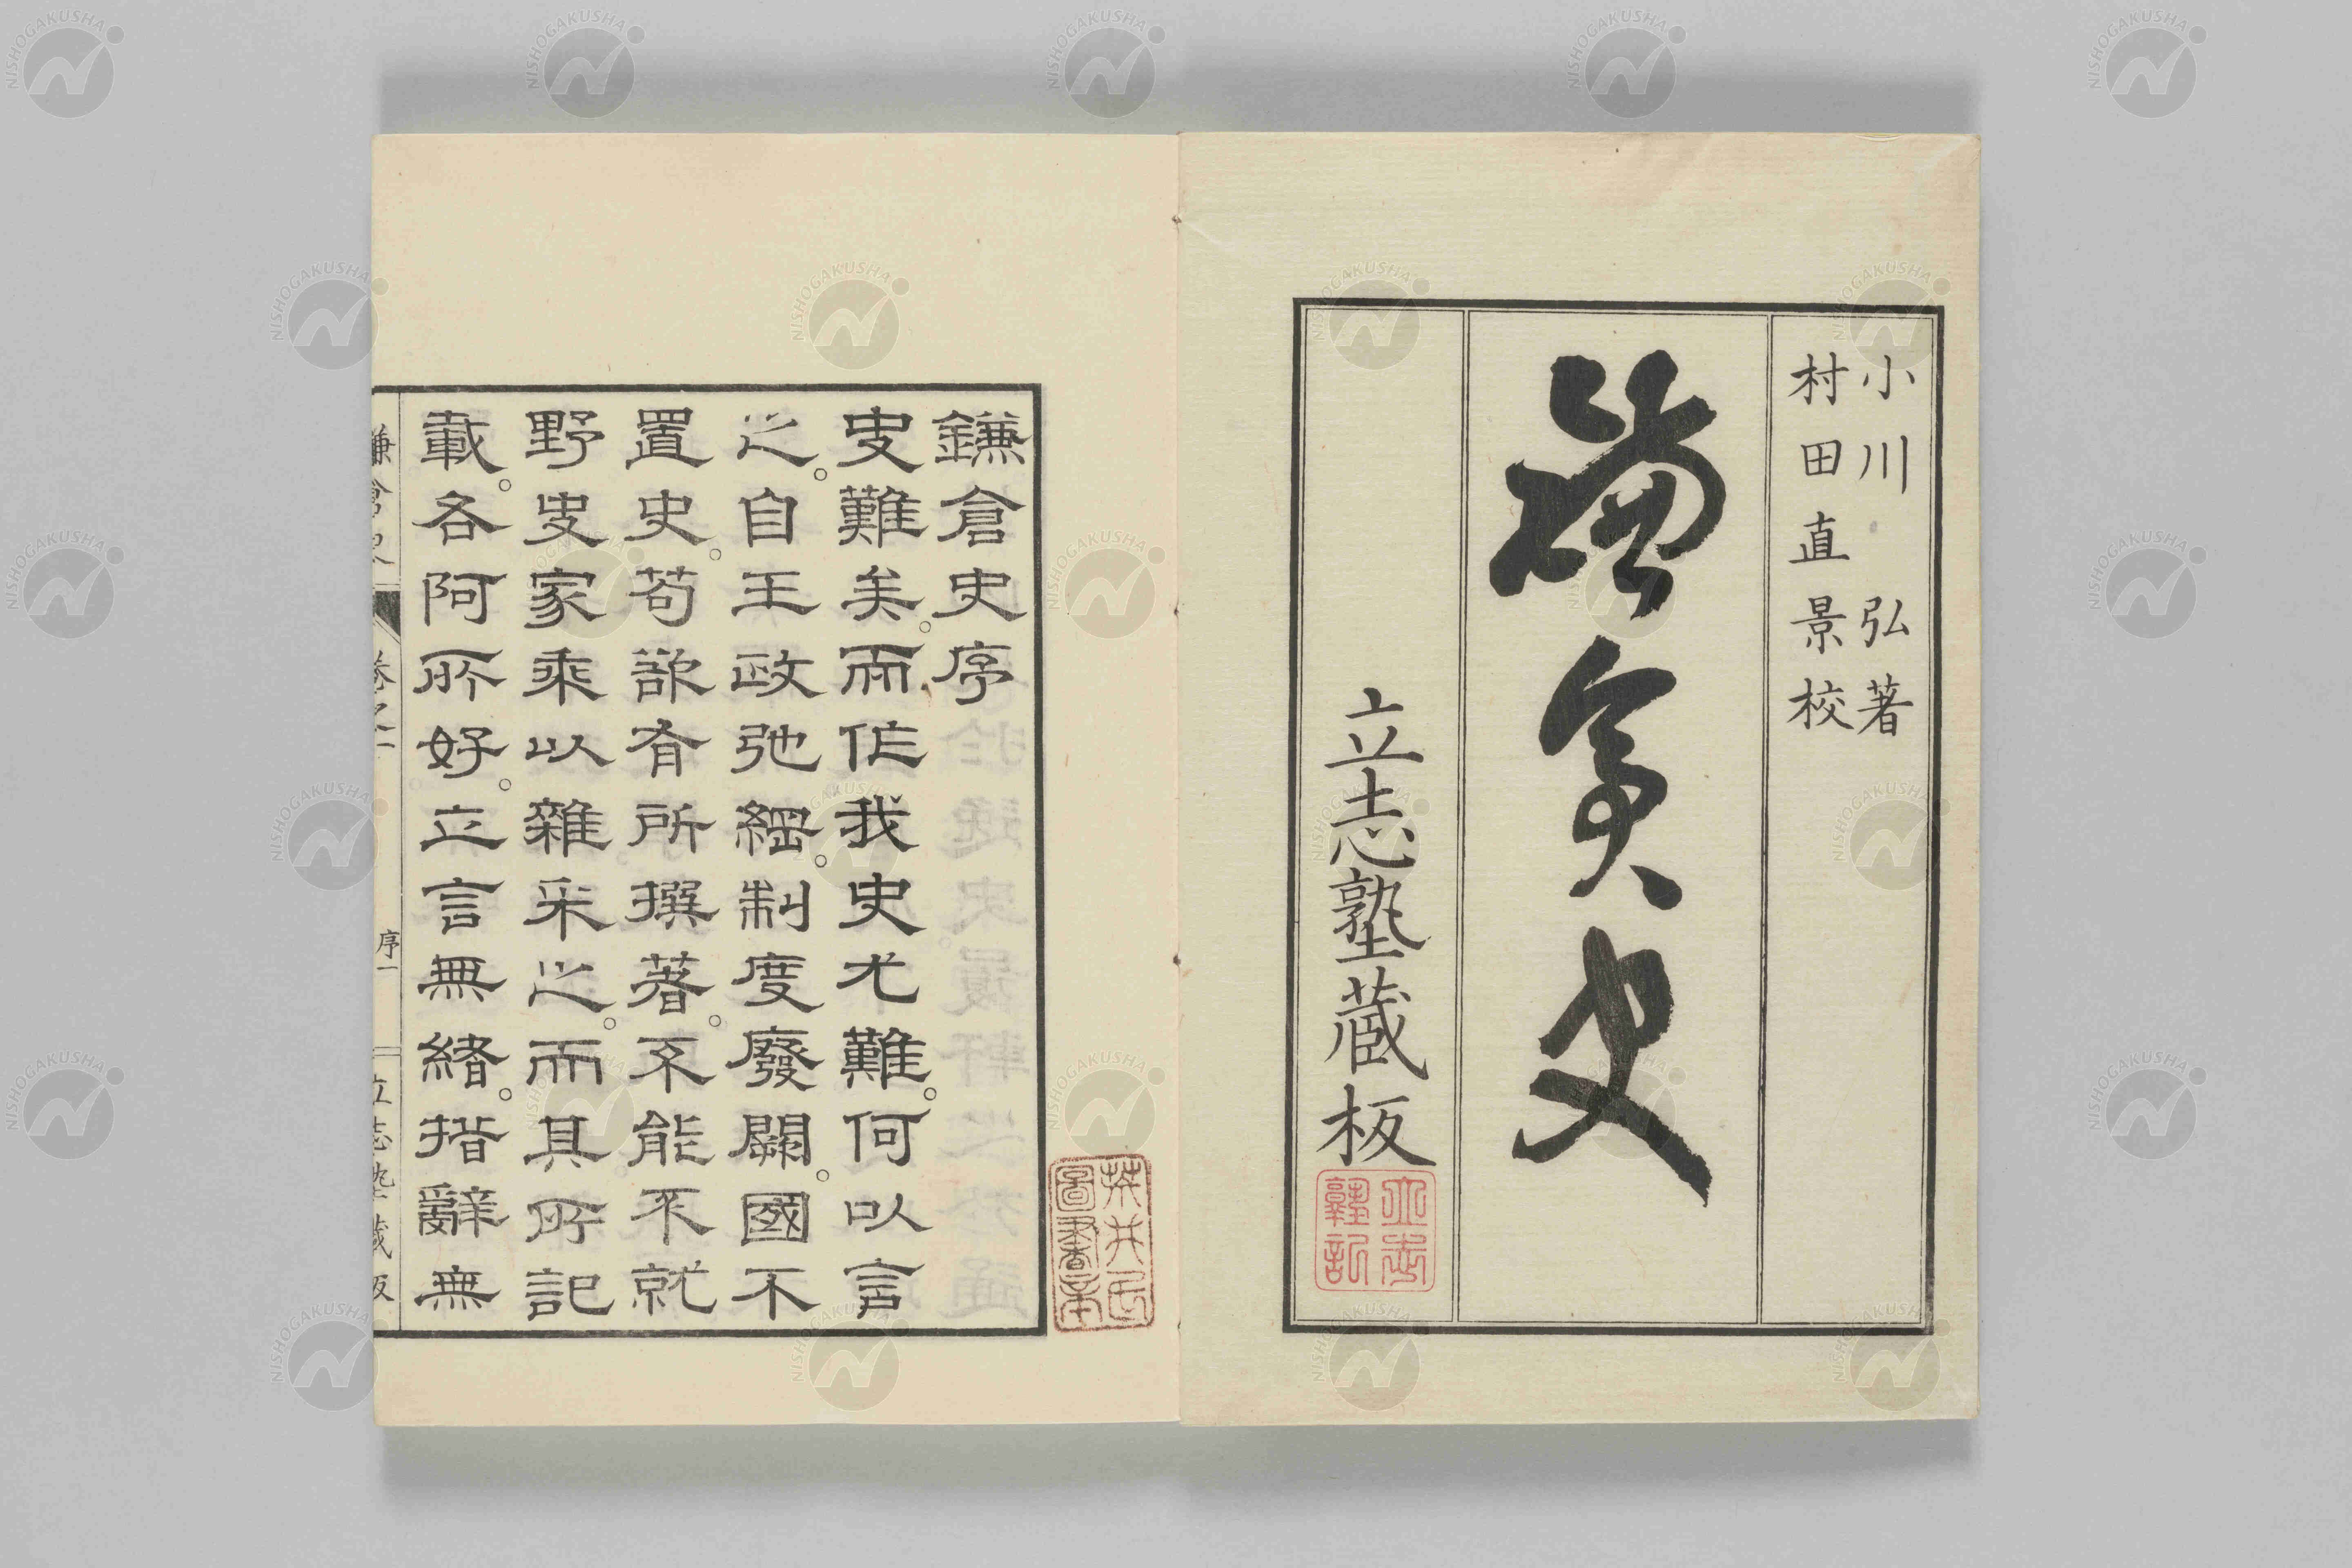 小川弘著
村田直景校
鎌倉史
立志塾蔵板
鎌倉史序
史難矣。而作我史尤難。何以言
之。自王政弛綱。制度廢闕。國不
置史。苟欲有所撰著。不能不就
野史家乘以雜采之。而其所記
載。各阿所好。立言無緒。措辭無
鎌倉史
卷之一
序一
立志塾藏板
NISHOGAKUSHA